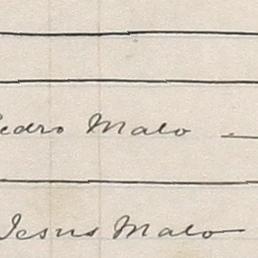 Pedro Malo
Jesus Malo